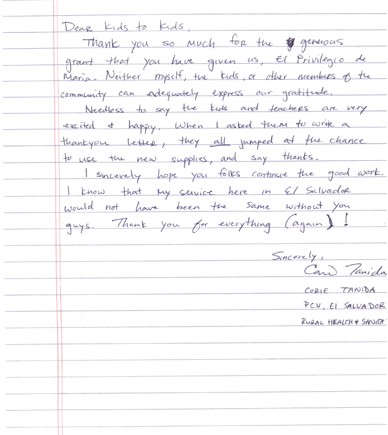 Dear Kids to Kids,
Thank you so much for the generous
grant that you have given us, El Privilegio de
Maria. Neither myself, the kids, or other members of the
community can adequately express our gratitude.
Needless to say the kids and teachers are very
excited & happy. When I asked them to write a
thankyou letter, they all jumped at the chance
to use the new supplies, and say thanks.
I sincerely hope you folks continue the good work.
I know that my service here in El Salvador
would not have been the same without you
guys. Thank you for everything (again)!
Sincerely,
Cori Tanida
CORIE TANIDA
PCV, El SALVADOR
RURAL HEALTH &